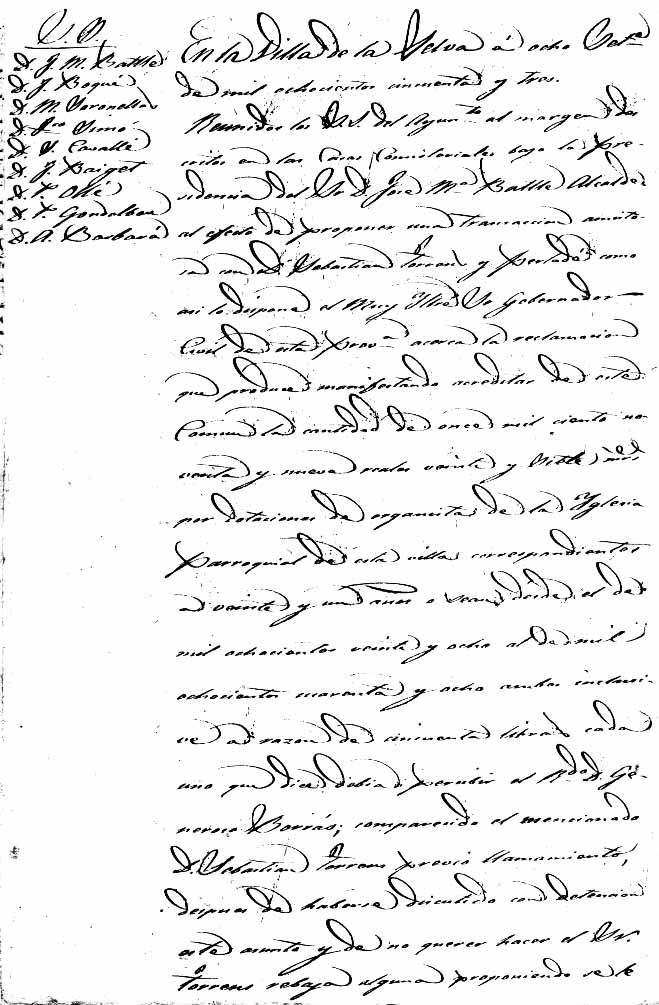 S. S.
D. J. M. Batlle
D. J. Boqué
D. M. Voronellas
D. Fco Simó
D. S. Cavallé
D. J. Baiget
D. P. Ollé
D. P. Gondalbeu
D. A. Barbará
En la Villa de la Selva á ocho Oct.e
de mil ochocientos cincuenta y tres.
Reunidos los S.S. del Ayun.to al margen des
critos en las Casas Consistoriales bajo la pre-
sidencia del Sr. D. José M.a Batlle Alcalde
al efecto de proponer una transaccion amisto-
sa con D. Sebastian Torrens y Pertadés como
asi lo dispone el Muy Iltre Sr Gobernador
Civil de esta prov.a acerca la reclamacion
que produce manifestando acreditar de este
Comun la cantidad de once mil ciento no
venta y nueve reales veinte y siete mrs
por dotaciones de organista de la Yglesia
Parroquial de esta villa correspondientes
a veinte y un años o sean desde el de
mil ochocientos veinte y ocho al de mil
ochocientos cuarenta y ocho ambos inclusi-
ve a razon de cincuenta libras cada
uno que dice debia percibir el R.do D. Ge-
neroso Borrás; comparecido el mencionado
D. Sebastian Torrens previo llamamiento,
despues de haberse discutido con detencion
este asunto y de no querer hacer el Sr.
Torrens rebaja alguna proponiendo se le